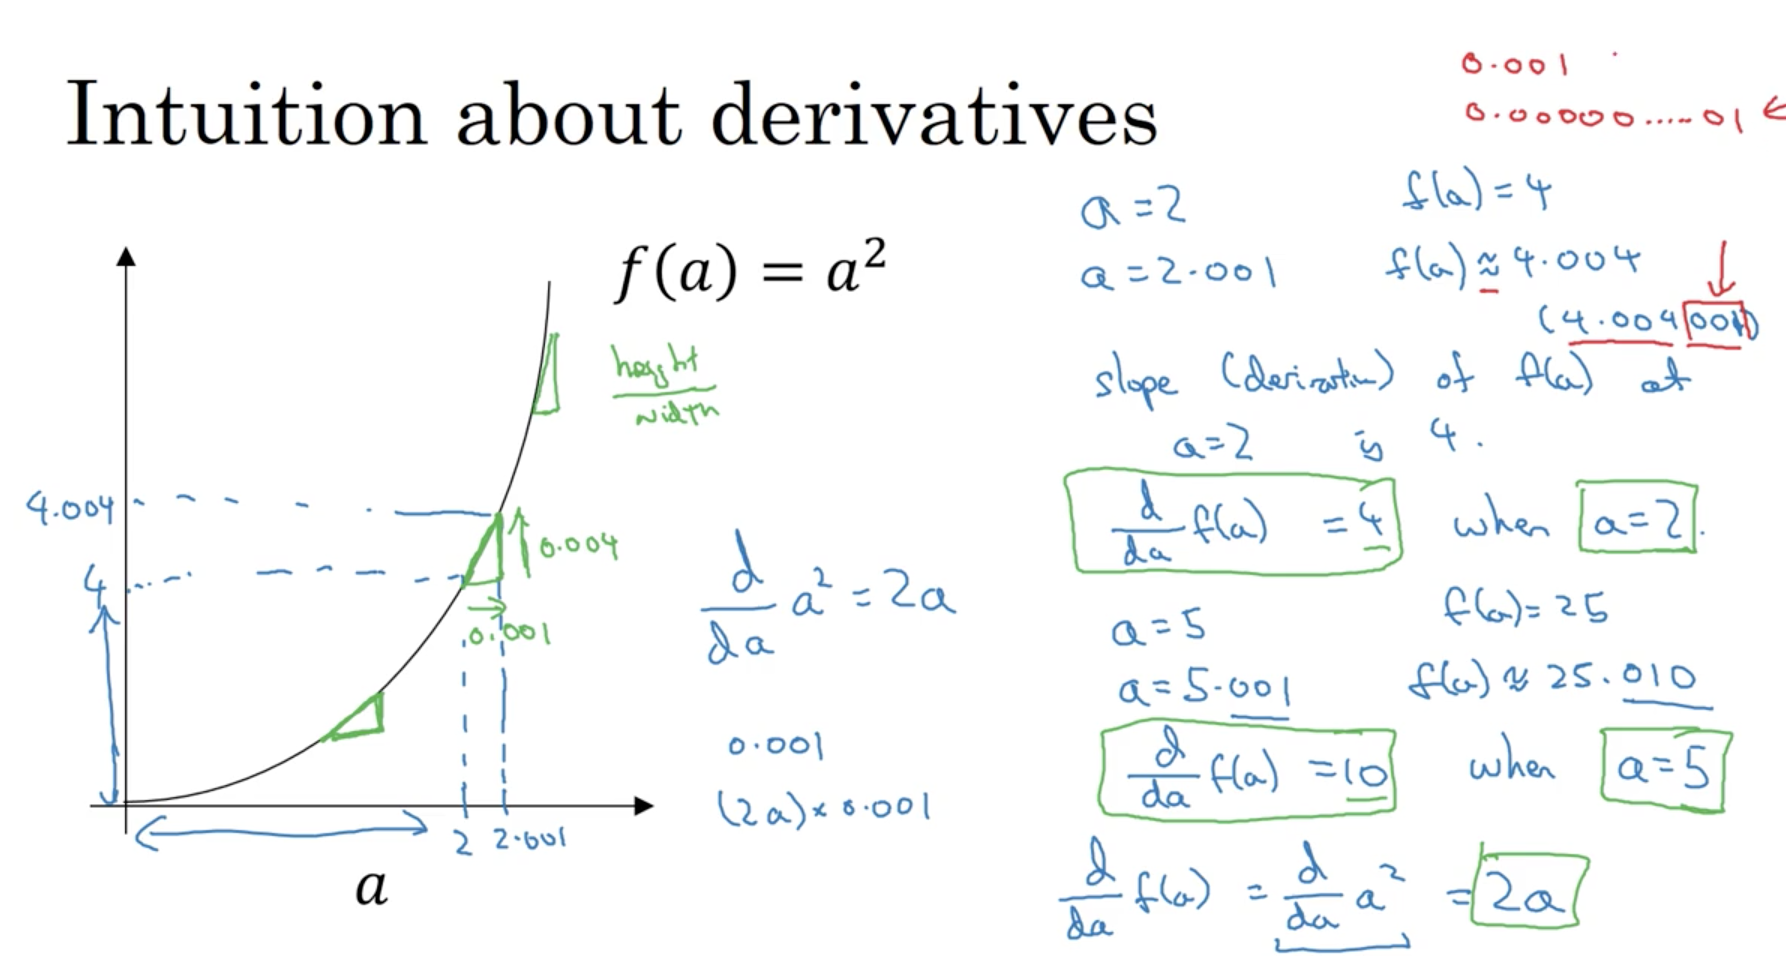 Intuition about derivatives
0.001
0.00000.....01 ←
f(a) = a²
height
width
4.004
4
0.004
0.001
2 2.001
a
d/da a² = 2a
0.001
(2a) × 0.001
a = 2 f(a) = 4
a = 2.001 f(a) ≈ 4.004
(4.004001)
slope (derivative) of f(a) at
a = 2 is 4.
d/da f(a) = 4 when a = 2.
a = 5 f(a) = 25
a = 5.001 f(a) ≈ 25.010
d/da f(a) = 10 when a = 5
d/da f(a) = d/da a² = 2a